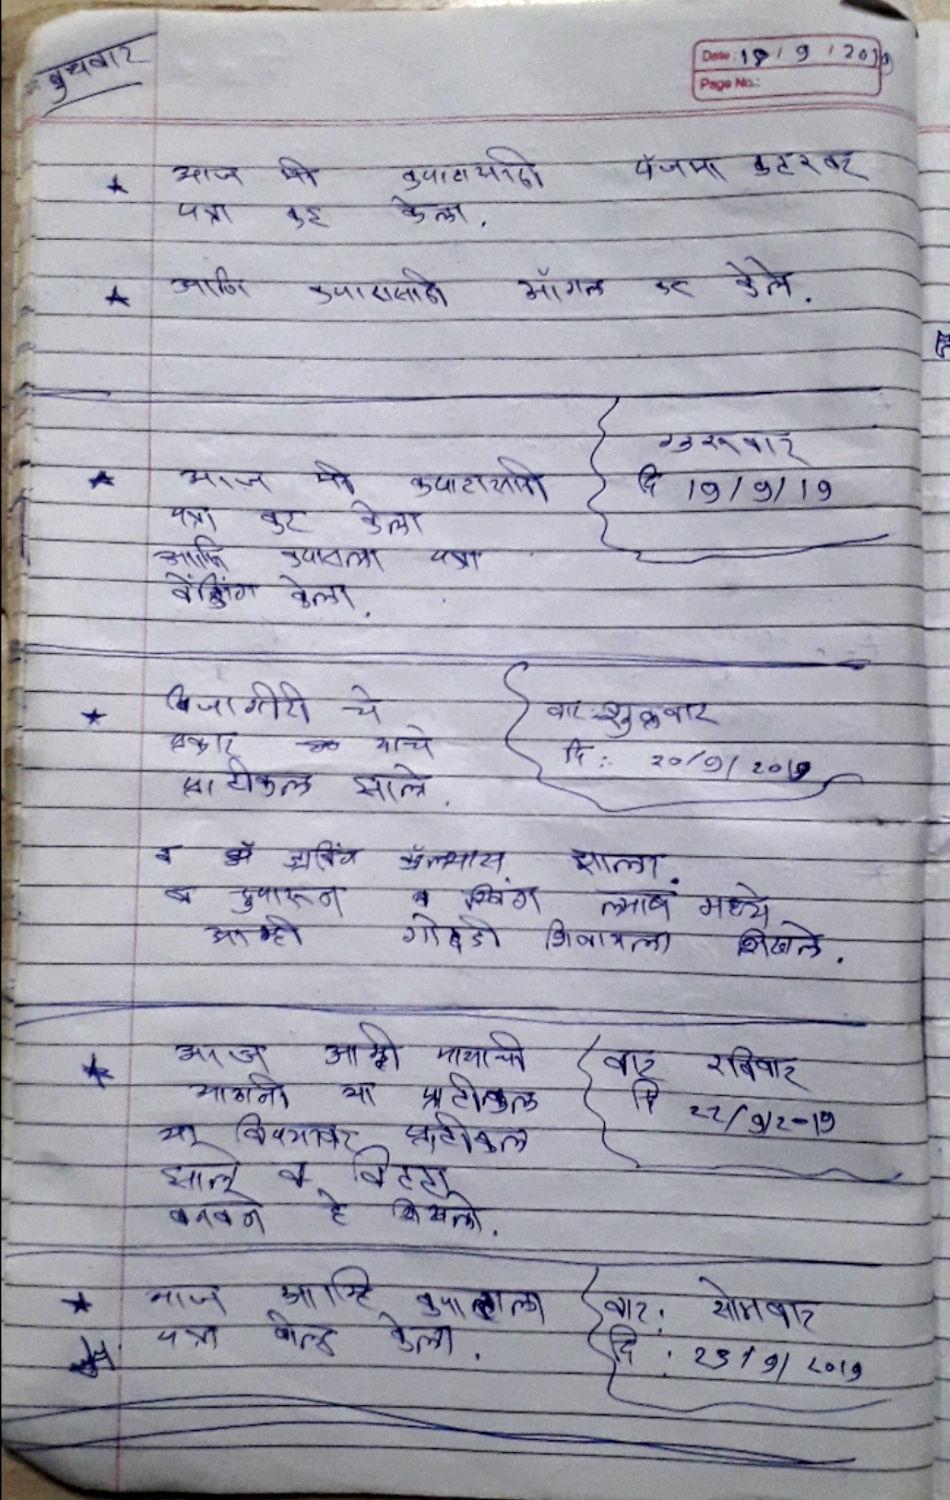 बुधवार
Date: 18 / 9 / 2019
Page No.:
★ आज मी कपाटासाठी पंजमा कटरवर
पत्रा कट केला.
★ आणि कपाटासाठी अँगल कट केले.
गुरुवार
दि 19/9/19
★ आज मी कपाटासाठी
पत्रा कट केला
आणि कपाटाला पत्रा
बेंडिंग केला.
वार: शुक्रवार
दि: 20/9/2019
★ बिजागीरी चे
प्रकार याचे
प्राटीकल झाले.
व झाला.
व व मध्ये
आम्ही शिवायला शिकले.
वार रविवार
दि 22/9/2019
★ आज आम्ही पायाची
आखनी या प्राटीकल
या विषयावर प्राटीकल
झाले व विटा
बनवने हे शिकलो.
वार: सोमवार
दि: 23/9/2019
★ आज आम्हि कपाटाला
पत्रा वेल्ड केला.